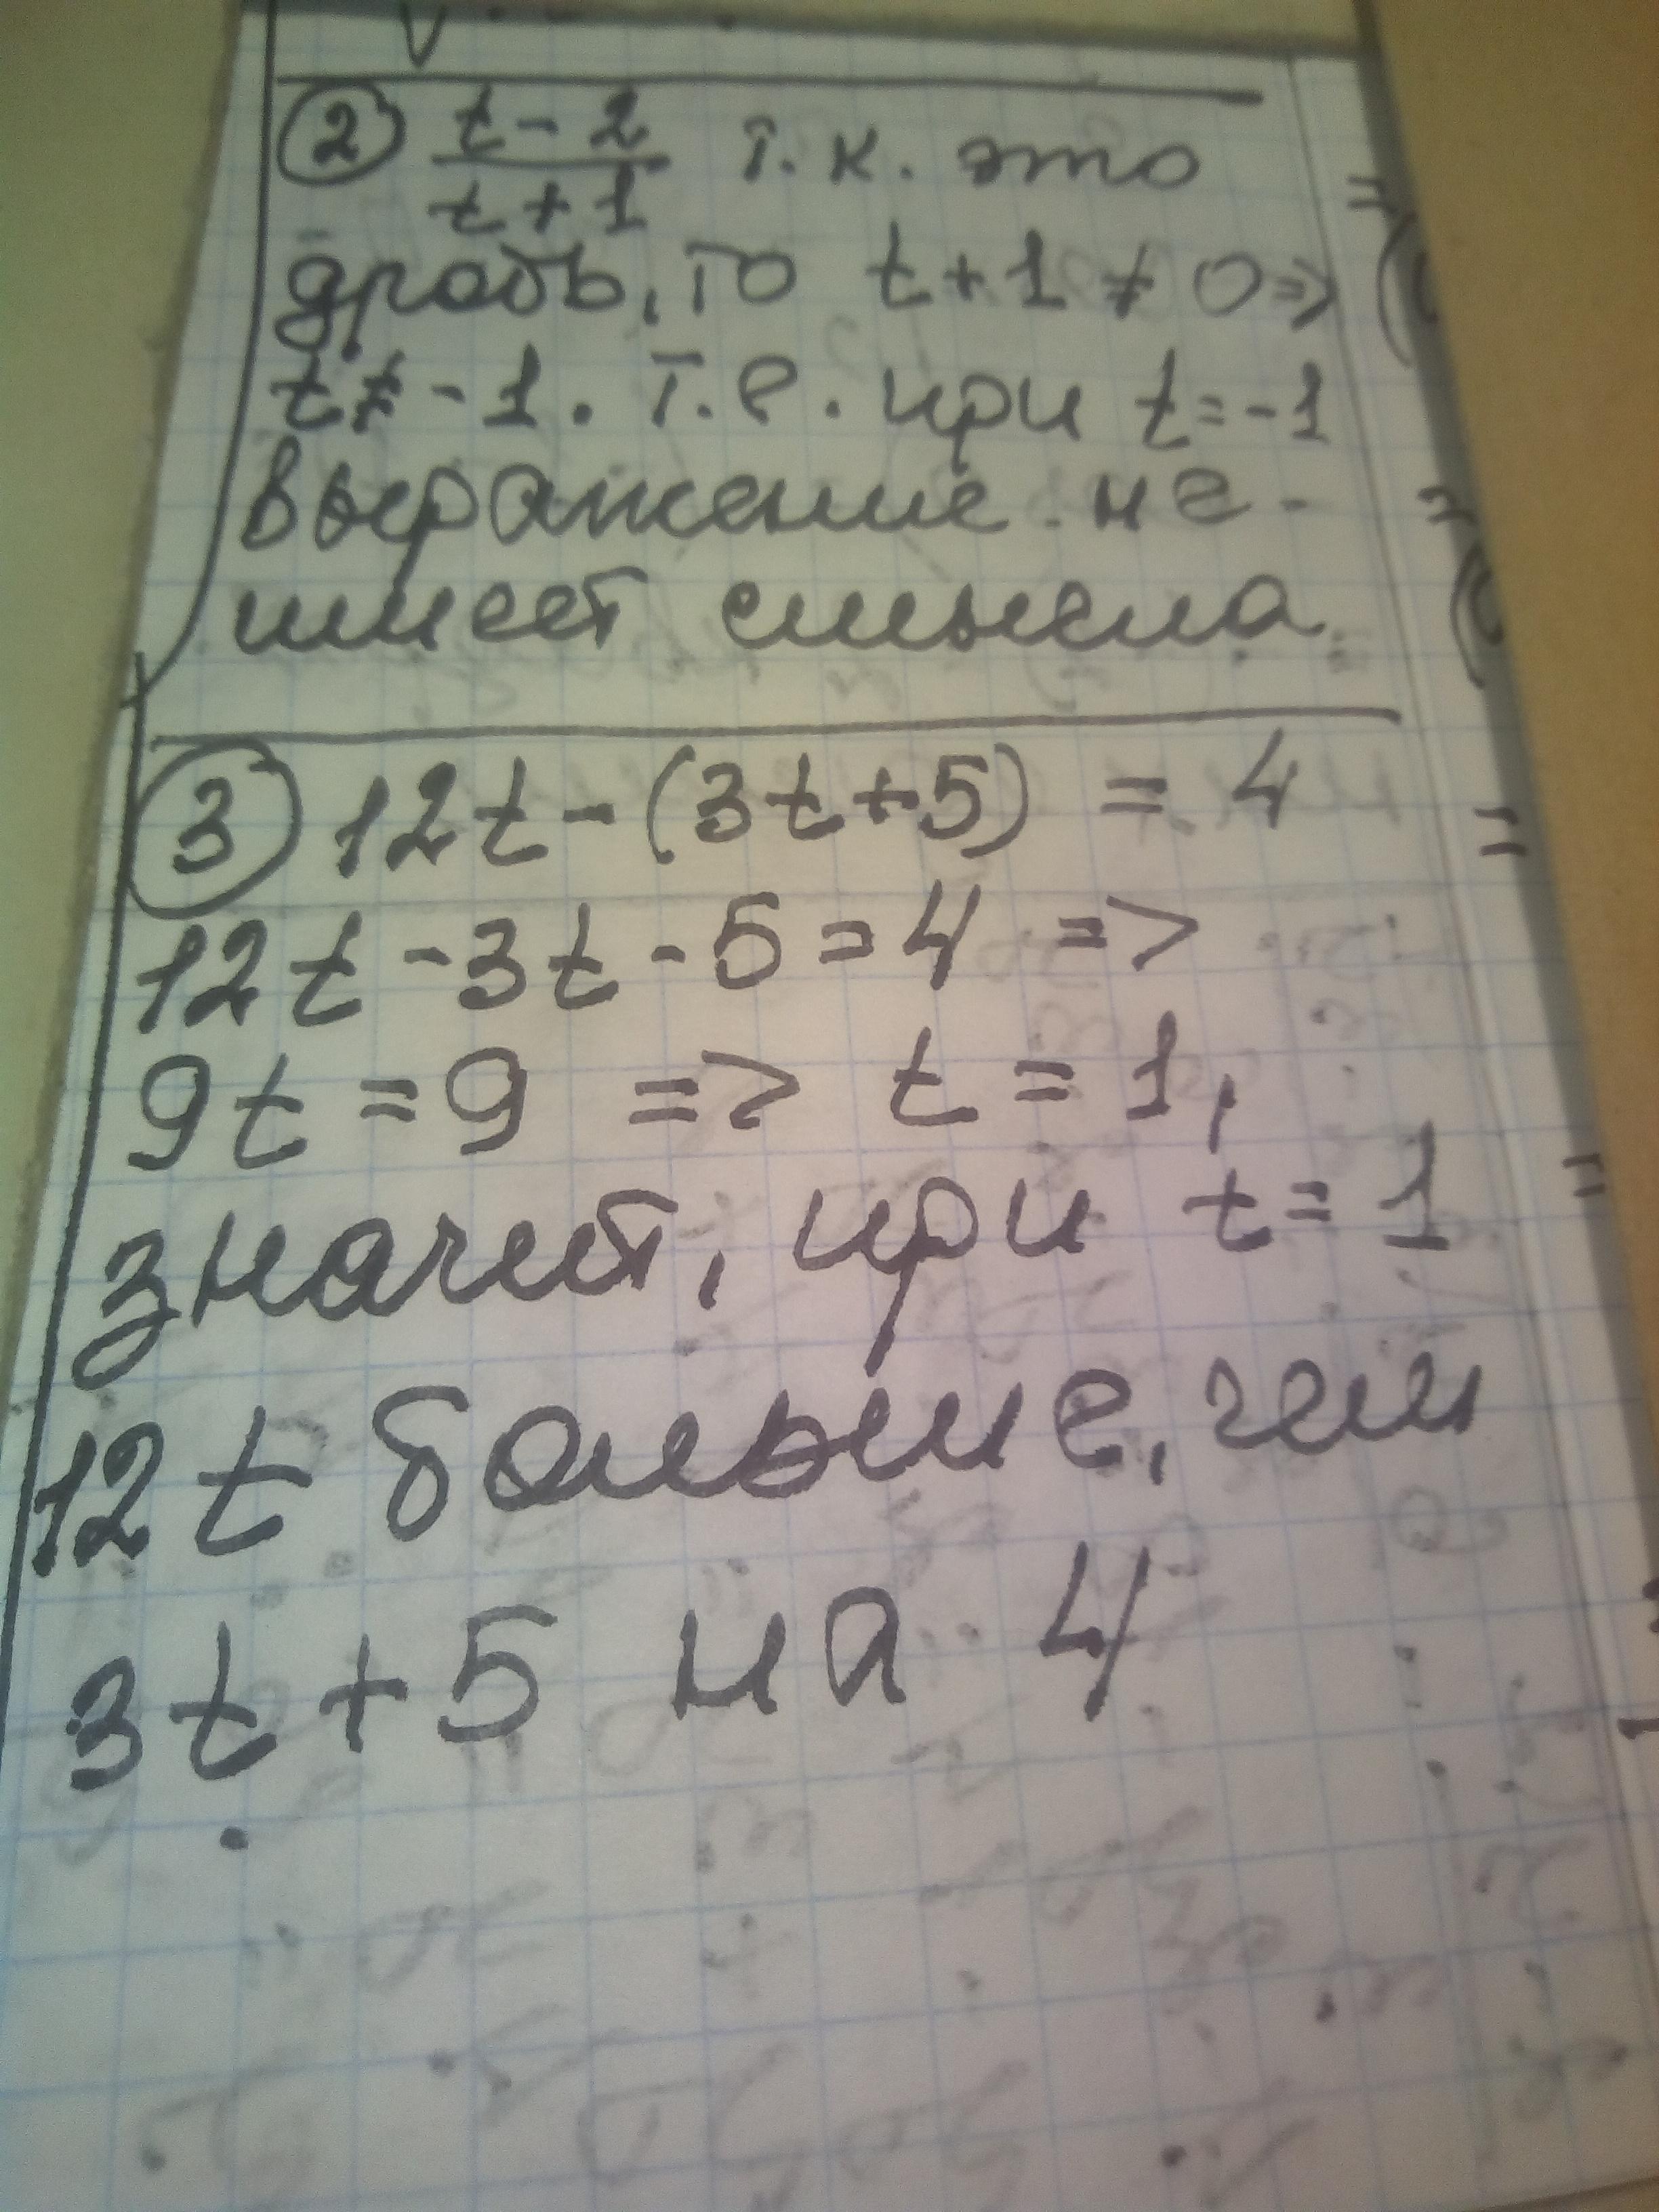 ② t - 2 / t + 1 т.к. это
дробь, то t + 1 ≠ 0 =>
t ≠ - 1. т.е. при t = - 1
выражение не
имеет смысла.
③ 12t - (3t + 5) = 4
12t - 3t - 5 = 4 =>
9t = 9 => t = 1,
значит, при t = 1
12t больше, чем
3t + 5 на 4